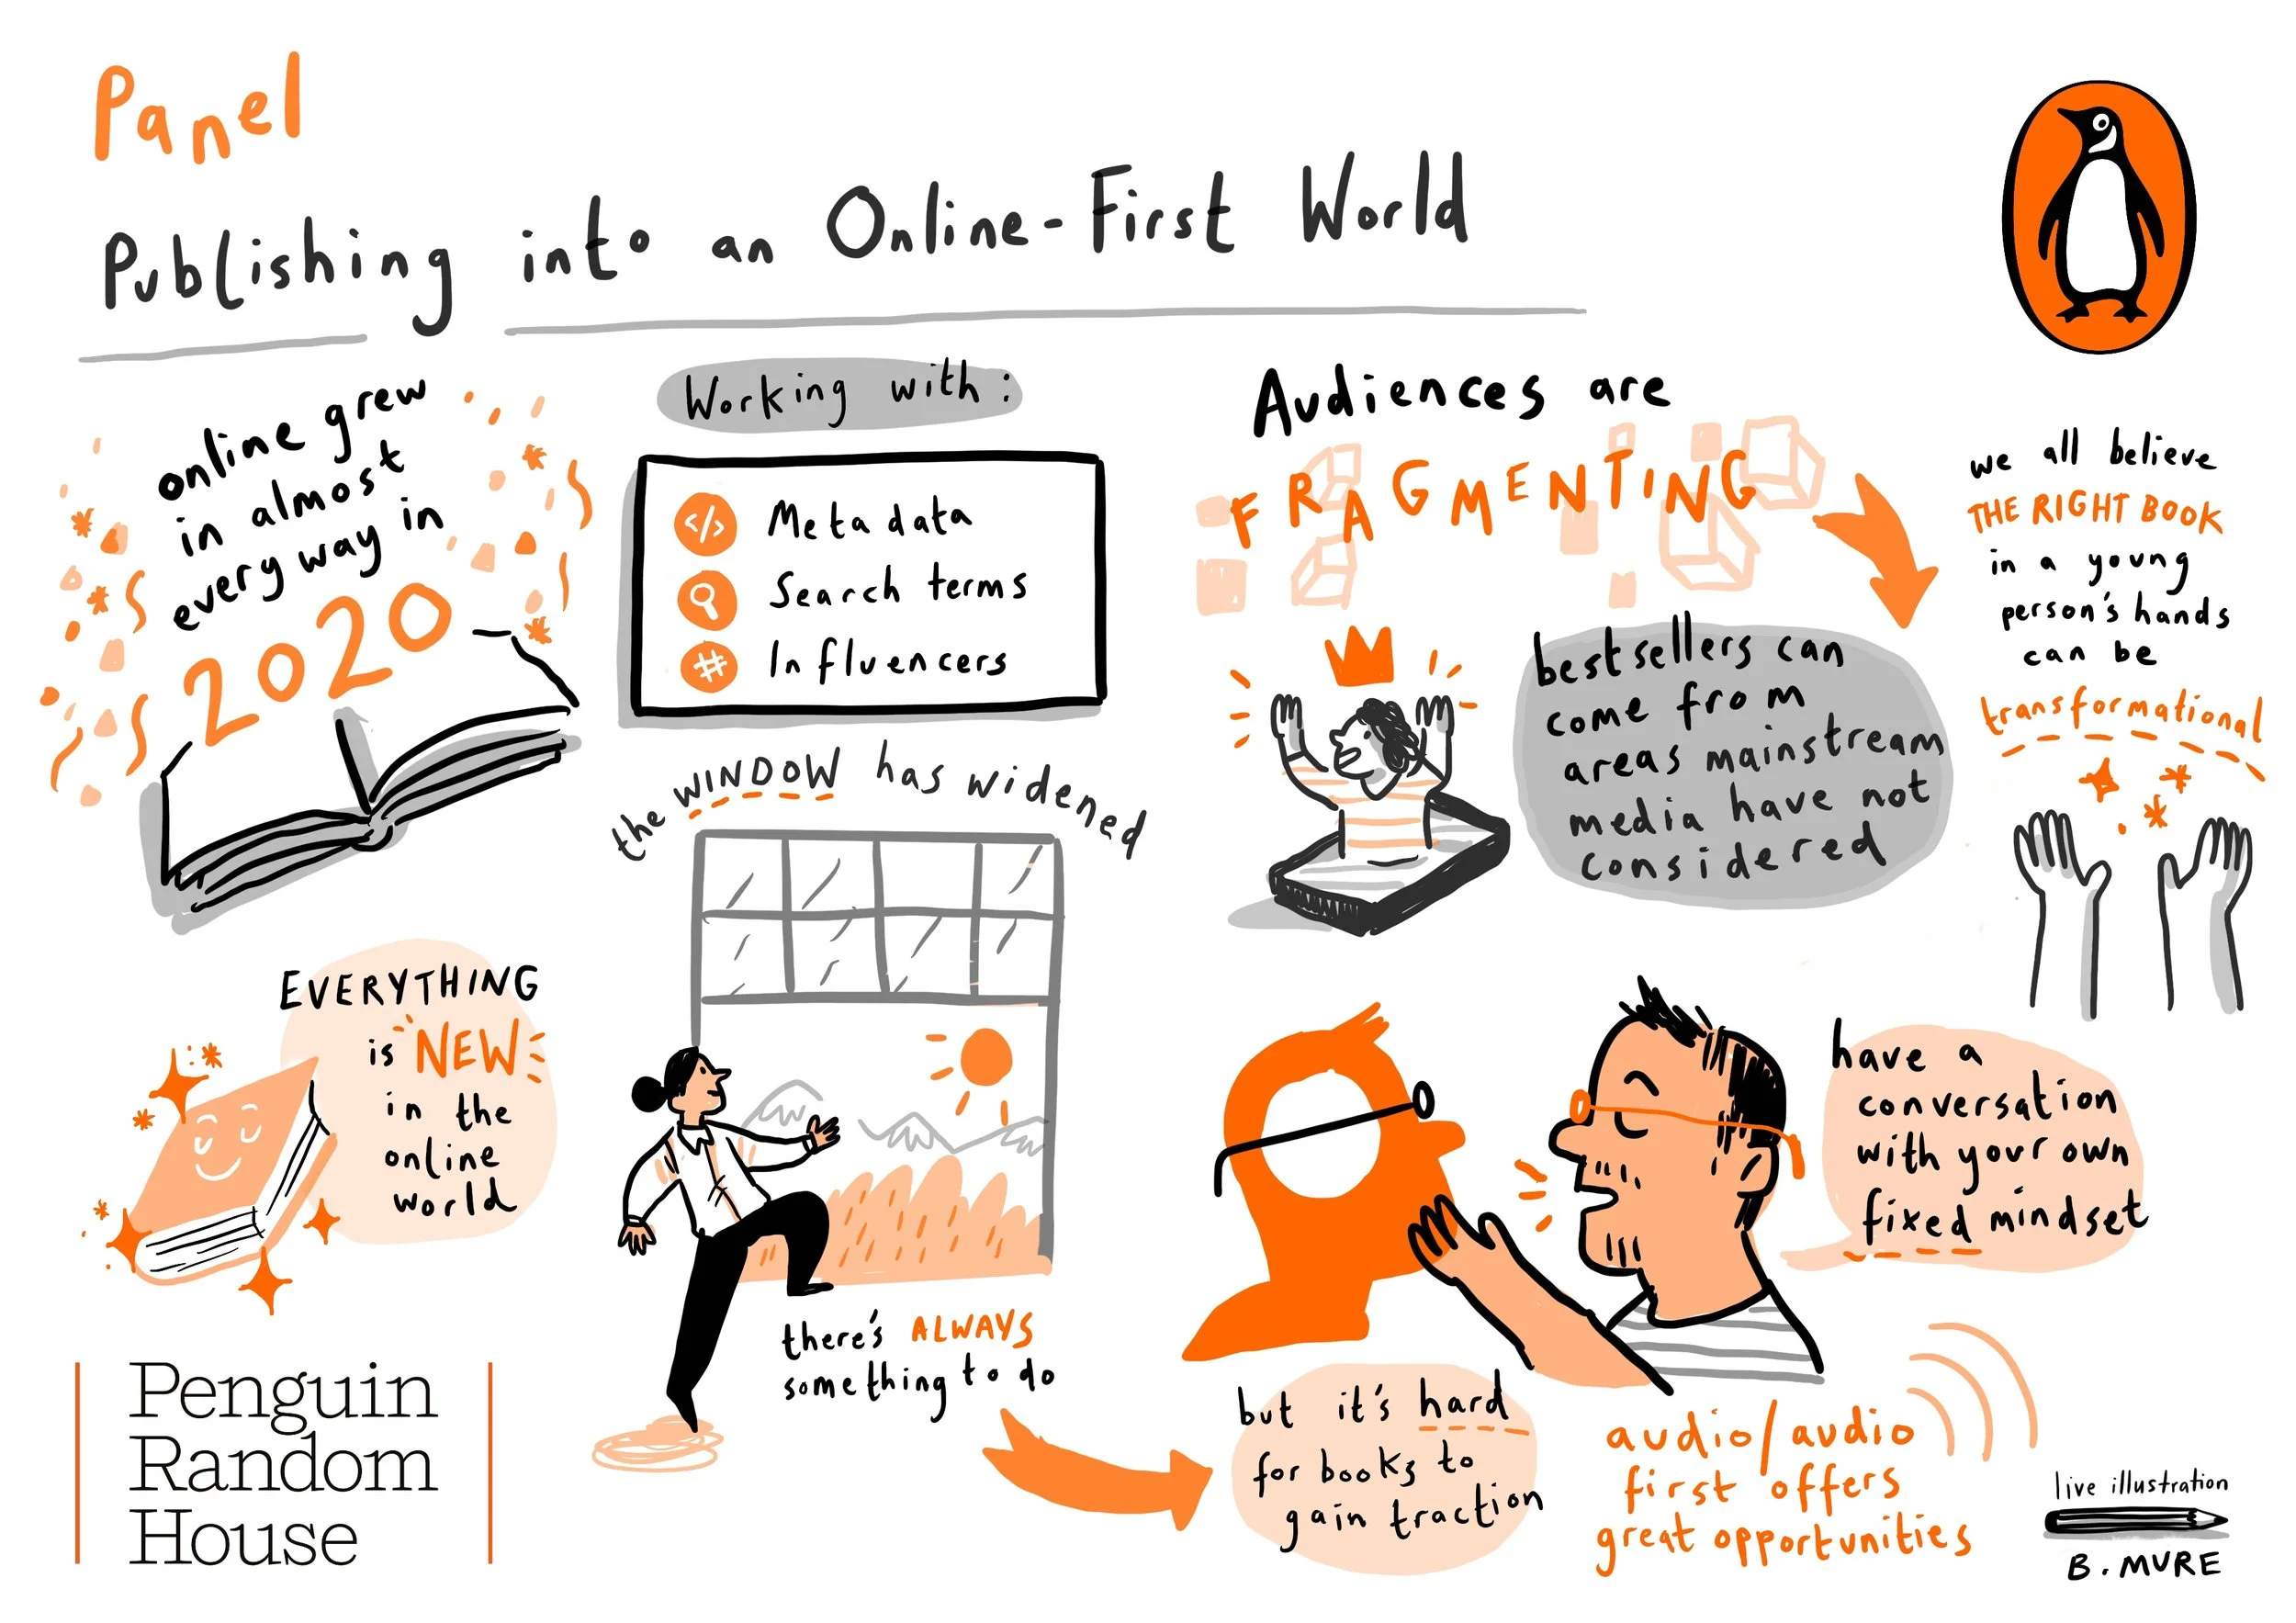 Panel
Publishing into an Online-First World
online grew
in almost
every way in
2020
Working with:
</>
Metadata
Search terms
#
Influencers
the WINDOW has widened
Audiences are
FRAGMENTING
bestsellers can
come from
areas mainstream
media have not
considered
we all believe
THE RIGHT BOOK
in a young
person's hands
can be
transformational
EVERYTHING
is NEW
in the
online
world
there's ALWAYS
something to do
but it's hard
for books to
gain traction
have a
conversation
with your own
fixed mindset
audio/audio
first offers
great opportunities
Penguin
Random
House
live illustration
B. MURE